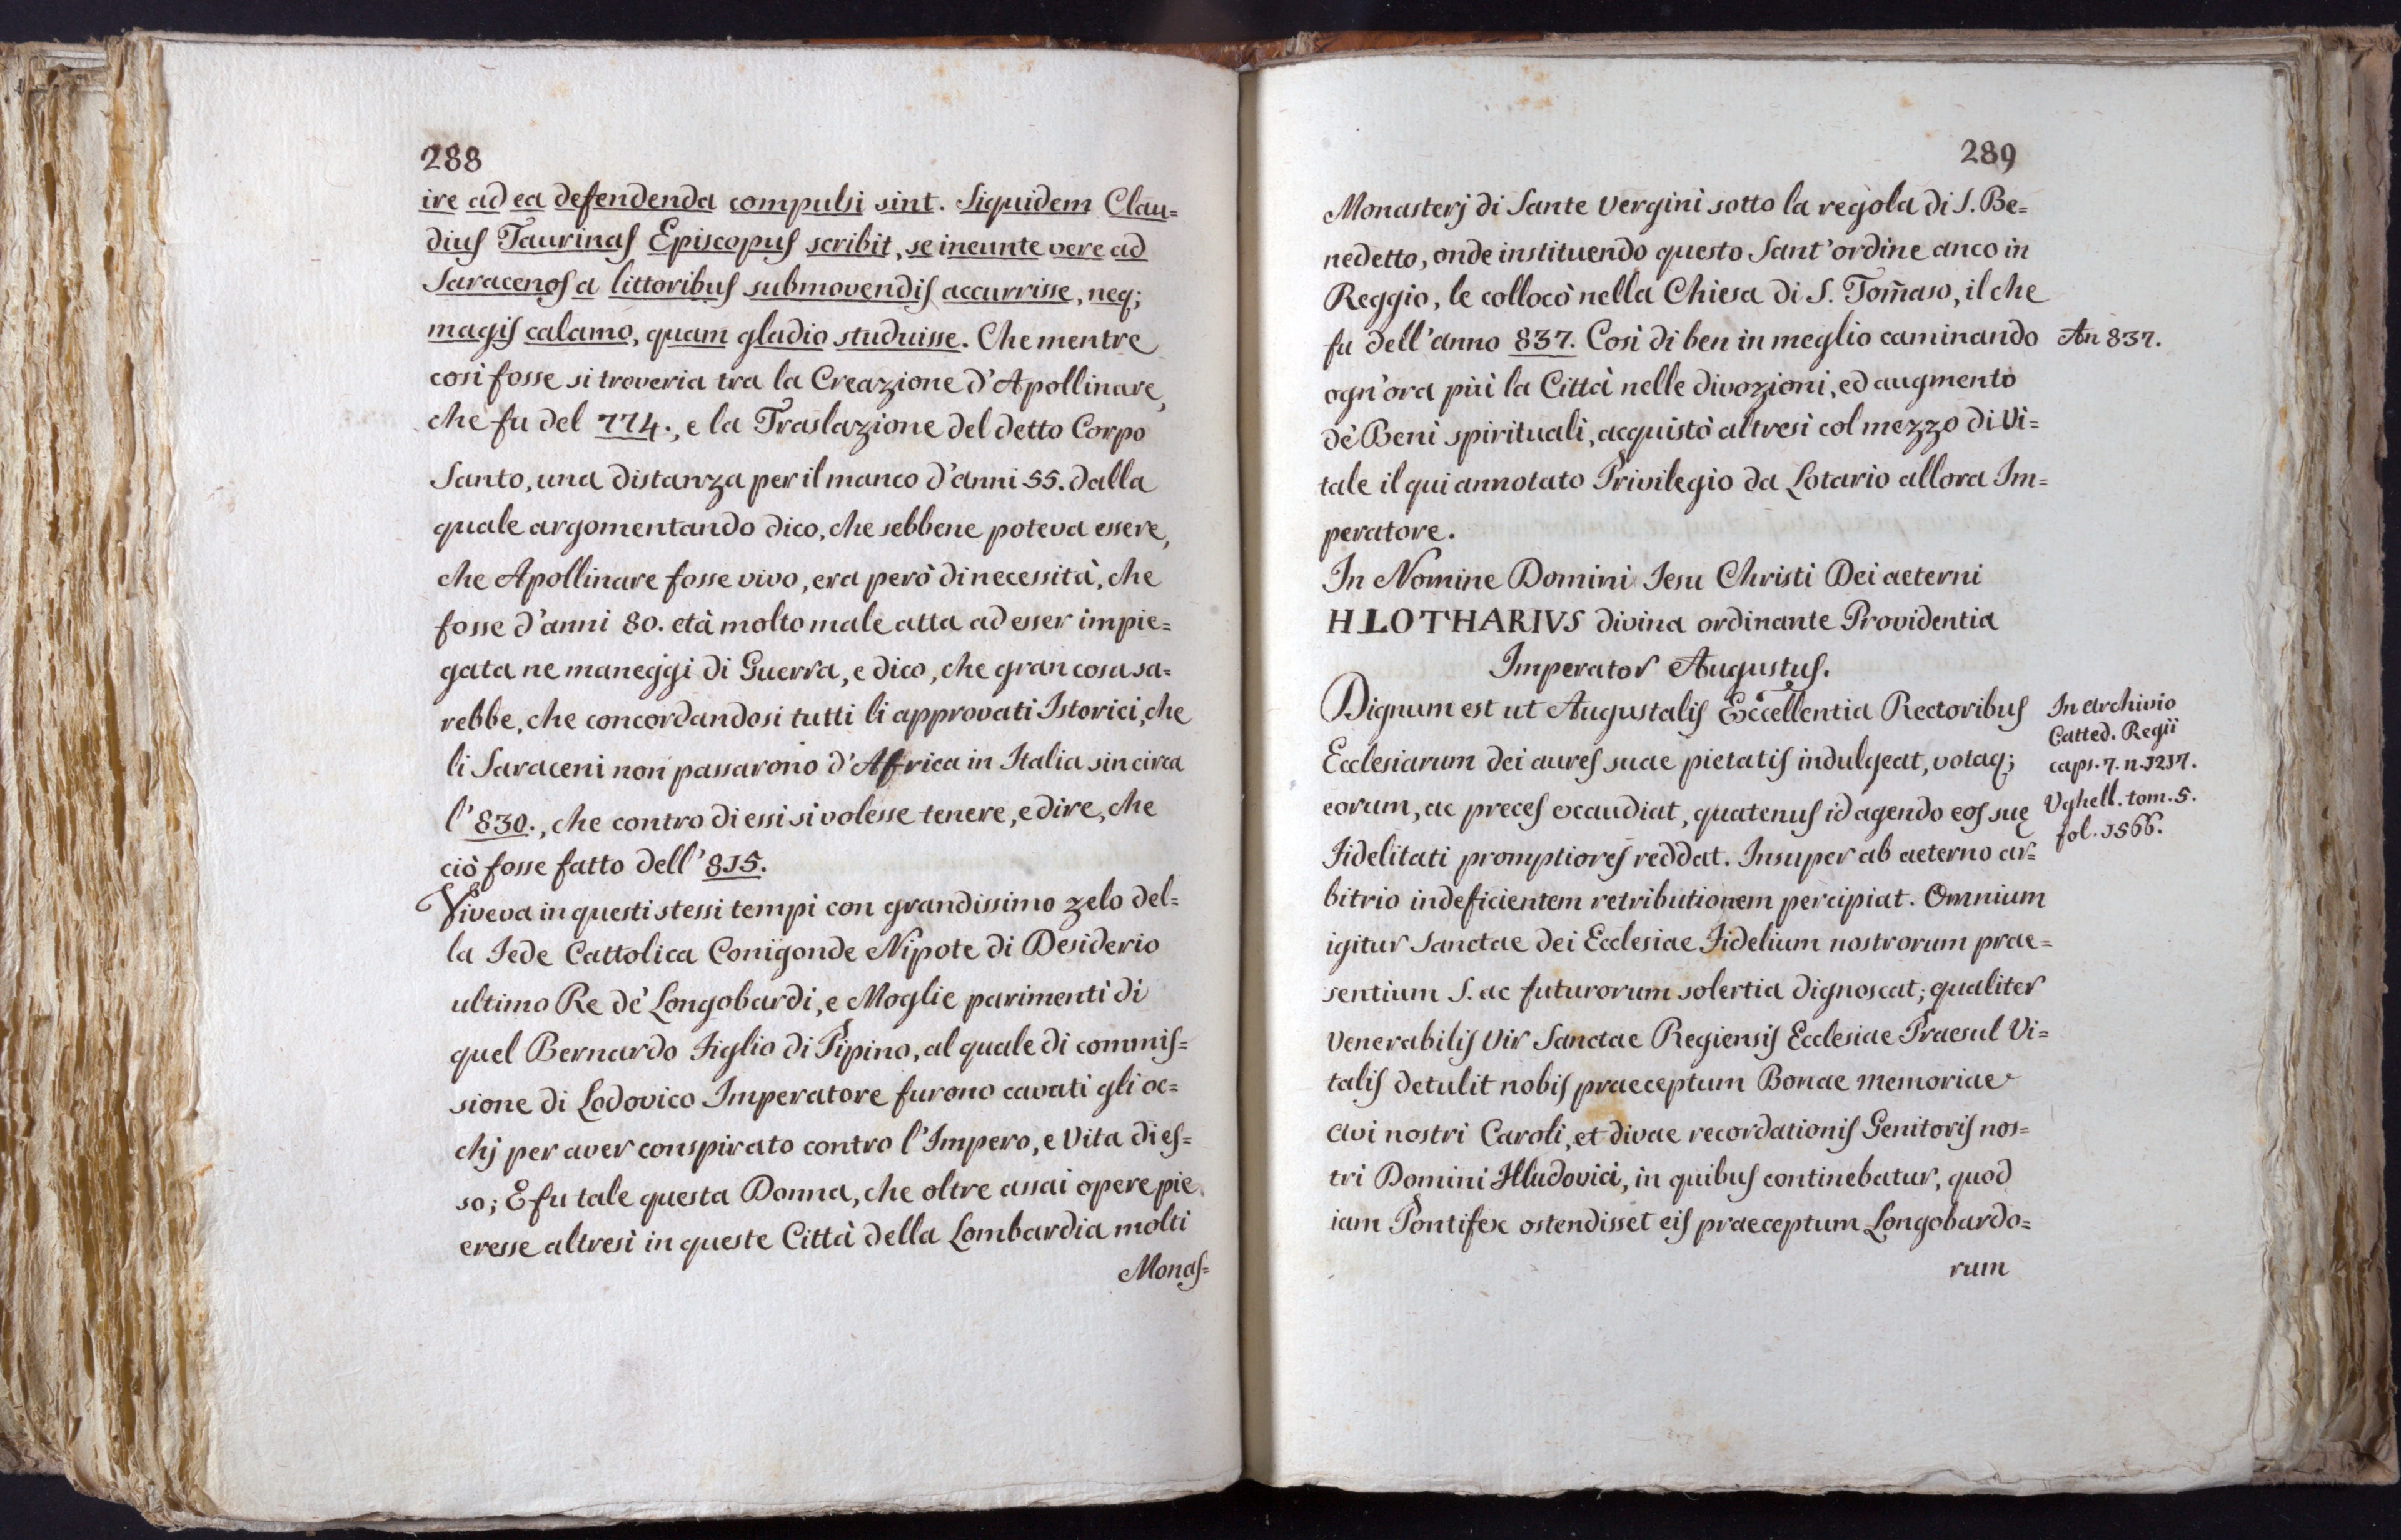 288
ire ad ea defendenda compulsi sint. Siquidem Clau=
dius Taurinas Episcopus scribit, se ineunte vere ad
Saracenos a littoribus submovendis accurrisse, neq;
magis calamo, quam gladio studuisse. Che mentre
così fosse si troveria tra la Creazione d'Apollinare,
che fu del 774., e la Traslazione del detto Corpo
Santo, una distanza per il manco d'anni 55. dalla
quale argomentando dico, che sebbene poteva essere,
che Apollinare fosse vivo, era però di necessità, che
fosse d'anni 80. età molto male atta ad esser impie=
gata ne maneggi di Guerra, e dico, che gran cosa sa=
rebbe, che concordandosi tutti li approvati Istorici, che
li Saraceni non passarono d'Africa in Italia sin circa
l'830., che contro di essi si volesse tenere, e dire, che
ciò fosse fatto dell'815.
Viveva in questi stessi tempi con grandissimo zelo del=
la Fede Cattolica Conigonde Nipote di Desiderio
ultimo Re de' Longobardi, e Moglie parimenti di
quel Bernardo Figlio di Pipino, al quale di commis=
sione di Lodovico Imperatore furono cavati gli oc=
chj per aver conspirato contro l'Impero, e Vita di es=
so; E fu tale questa Donna, che oltre assai opere pie
eresse altresì in queste Città della Lombardia molti
Monas=
289
Monasterj di Sante Vergini sotto la regola di S. Be=
nedetto, onde instituendo questo Sant'ordine anco in
Reggio, le collocò nella Chiesa di S. Tom̃aso, il che
fu dell'anno 837. Così di ben in meglio caminando
An 837.
ogn'ora più la Città nelle divozioni, ed augmento
de' Beni spirituali, acquistò altresi col mezzo di Vi=
tale il qui annotato Privilegio da Lotario allora Im=
peratore.
In Nomine Domini Iesu Christi Dei aeterni
HLOTHARIVS divina ordinante Providentia
Imperator Augustus.
Dignum est ut Augustalis Eccellentia Rectoribus
Ecclesiarum dei aures suae pietatis indulgeat, votaq;
eorum, ac preces excaudiat, quatenus id agendo eos suę
Fidelitati promptiores reddat. Insuper ab aeterno ar=
bitrio indeficientem retributionem percipiat. Omnium
igitur Sanctae dei Ecclesiae Fidelium nostrorum prae=
sentium S. ac futurorum solertia dignoscat; qualiter
Venerabilis Vir Sanctae Regiensis Ecclesiae Praesul Vi=
talis detulit nobis praeceptum Bonae memoriae
avi nostri Caroli, et divae recordationis Genitoris nos=
tri Domini Hludovici, in quibus continebatur, quod
iam Pontifex ostendisset eis praeceptum Longobardo=
rum
In archivio
Catted. Regii
caps. 7. n. 1217.
Vghell. tom. 5.
fol. 1566.